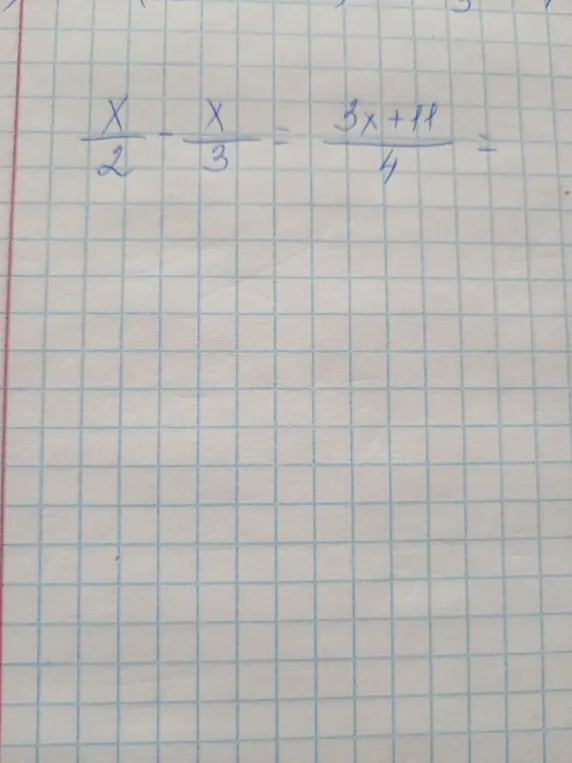 x/2 - x/3 = 3x+11/4 =